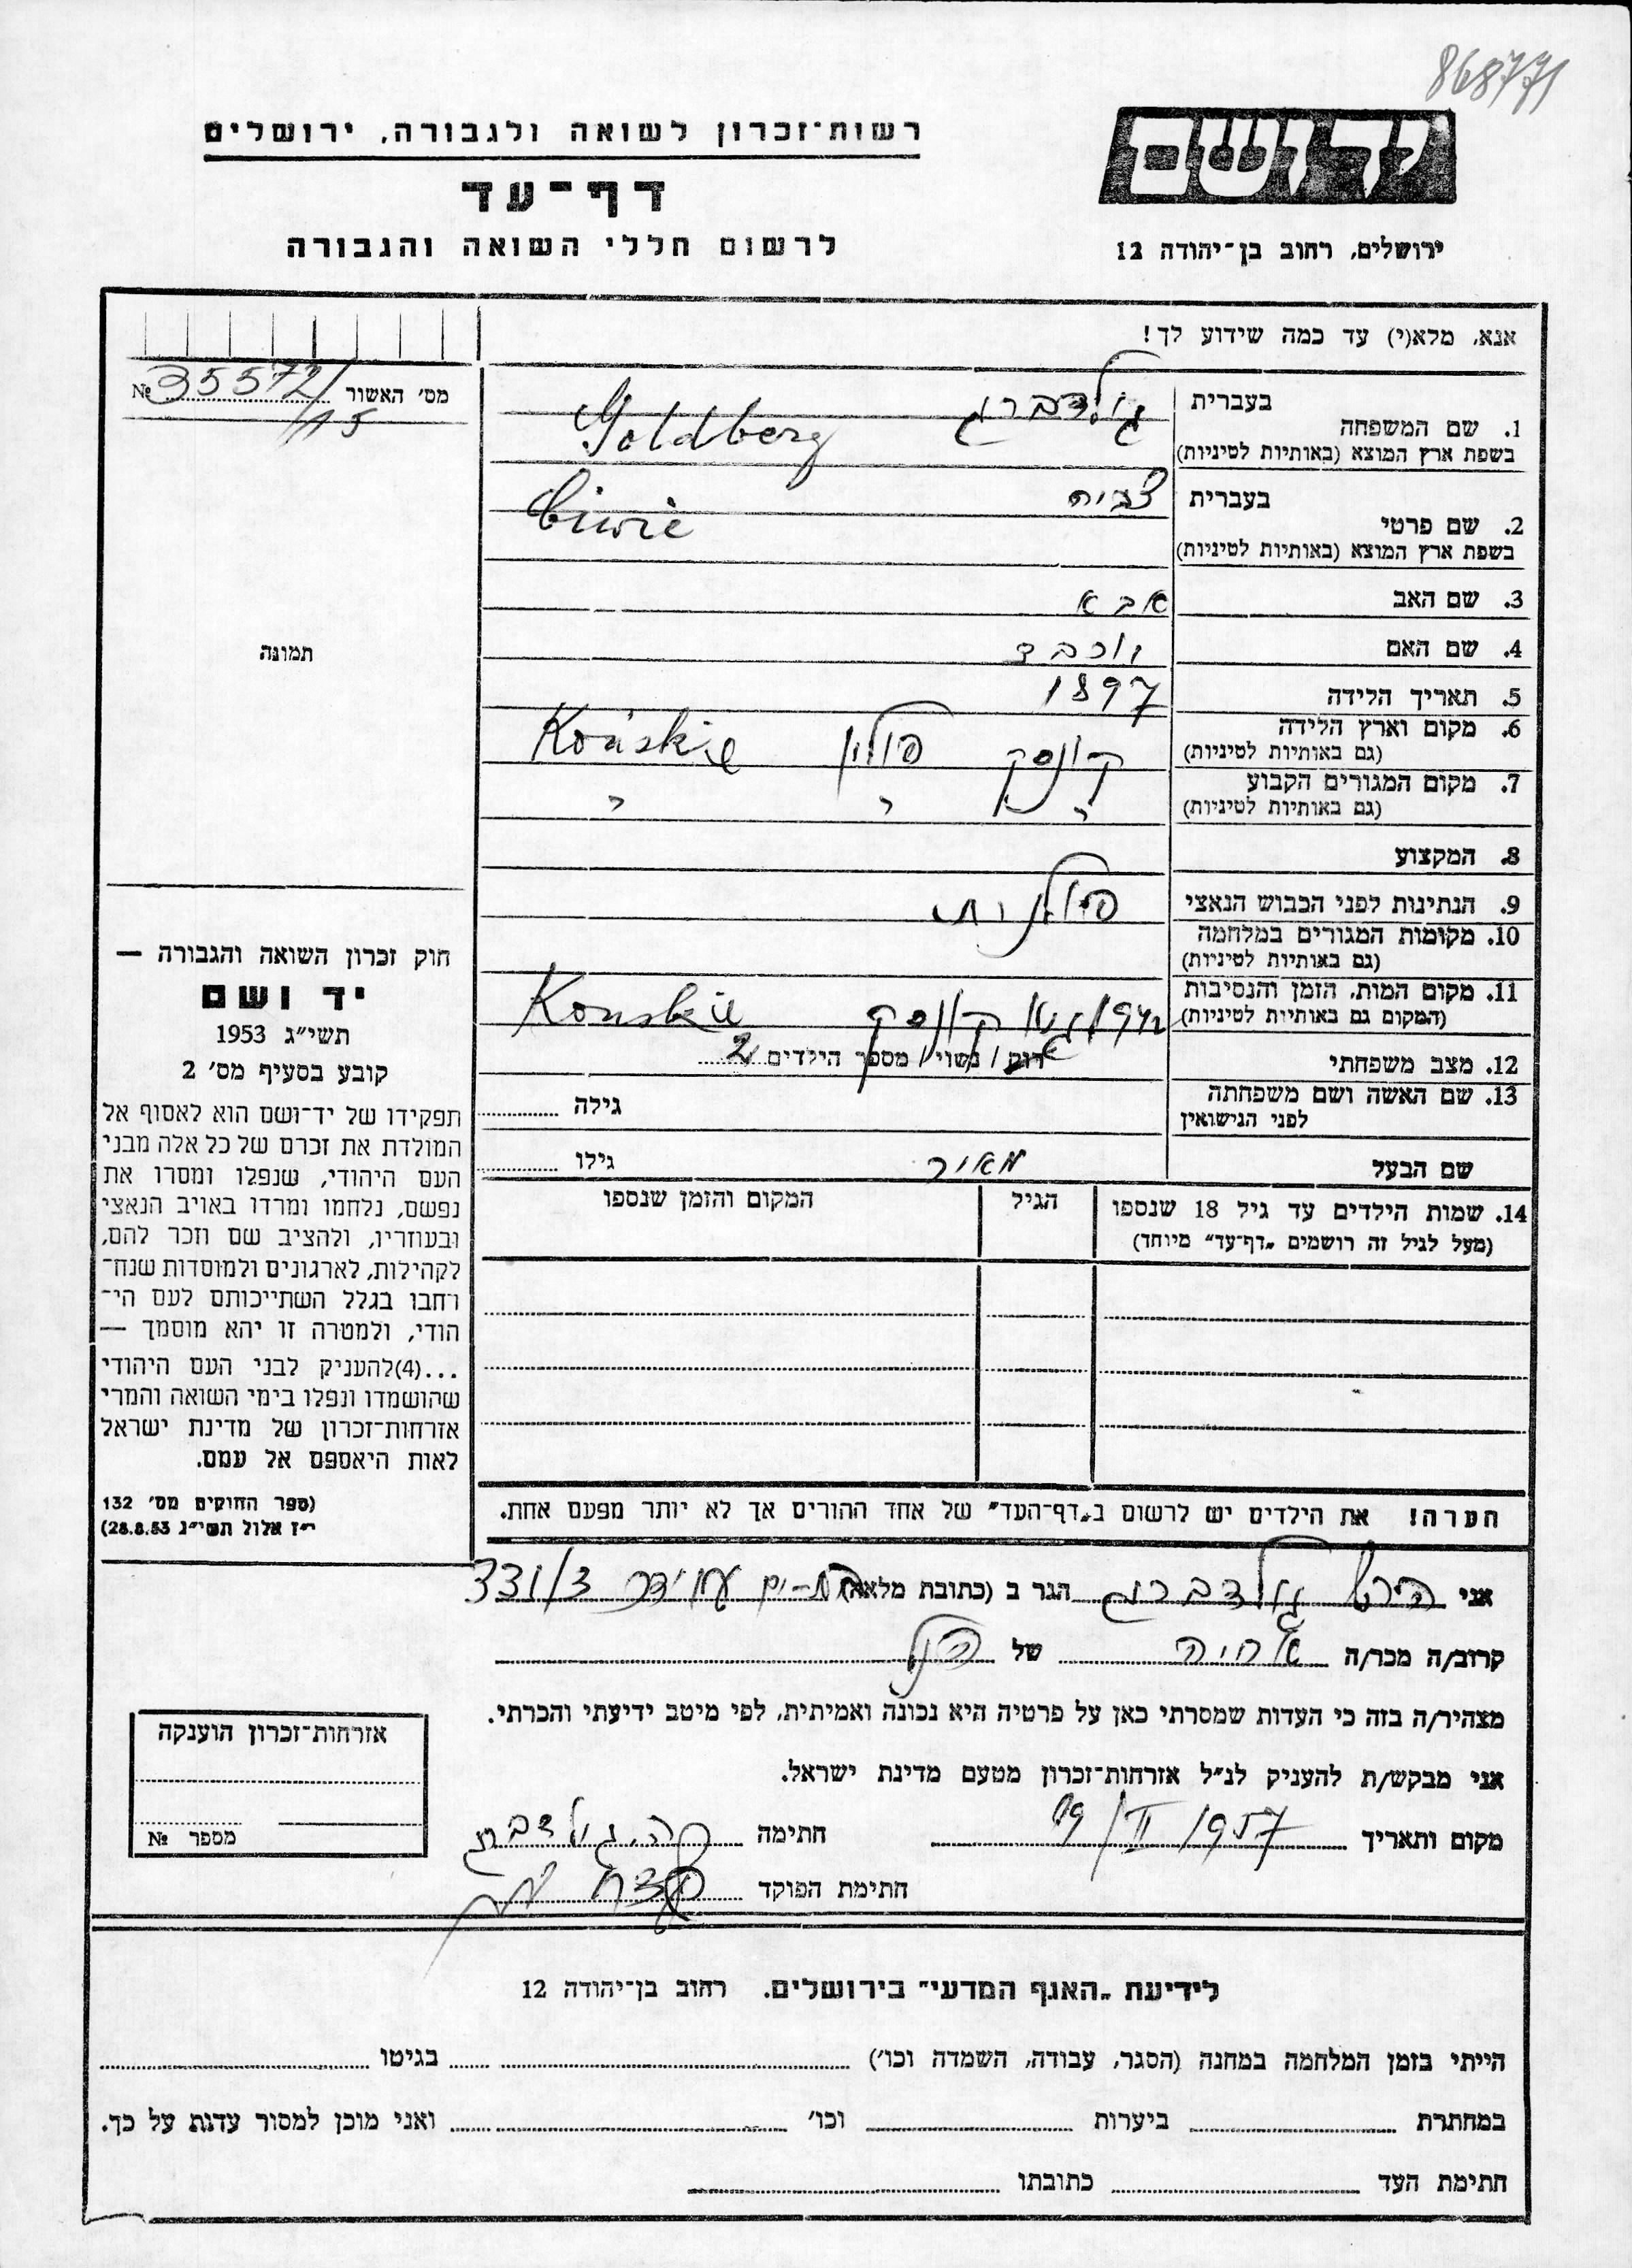 868771
רשות־זכרון לשואה ולגבורה, ירושלים
דף־עד
לרשום חללי השואה והגבורה
יד ושם
ירושלים, רחוב בן־יהודה 12
אנא, מלא(י) עד כמה שידוע לך!
מס׳ האשור 35572/ №
15
תמונה
1. שם המשפחה
בעברית גולדברג
בשפת ארץ המוצא (באותיות לטיניות) Goldberg
2. שם פרטי
בעברית צביה
בשפת ארץ המוצא (באותיות לטיניות) Ciwie
3. שם האב אבא
4. שם האם יוכבד
5. תאריך הלידה 1897
6. מקום וארץ הלידה קונסק פולין Końskie
(גם באותיות לטיניות)
7. מקום המגורים הקבוע " " "
(גם באותיות לטיניות)
8. המקצוע
9. הנתינות לפני הכבוש הנאצי פולנית
10. מקומות המגורים במלחמה
(גם באותיות לטיניות)
11. מקום המות, הזמן והנסיבות 1942 קונסק Konskie
(המקום גם באותיות לטיניות)
12. מצב משפחתי רוק / נשוי / מספר הילדים 2
13. שם האשה ושם משפחתה גילה
לפני הנישואין
שם הבעל מאיר גילו
14. שמות הילדים עד גיל 18 שנספו הגיל המקום והזמן שנספו
(מעל לגיל זה רושמים „דף־עד״ מיוחד)
הערה! את הילדים יש לרשום ב„דף־העד״ של אחד ההורים אך לא יותר מפעם אחת.
חוק זכרון השואה והגבורה —
יד ושם
תשי״ג 1953
קובע בסעיף מס׳ 2
תפקידו של יד־ושם הוא לאסוף אל
המולדת את זכרם של כל אלה מבני
העם היהודי, שנפלו ומסרו את
נפשם, נלחמו ומרדו באויב הנאצי
ובעוזריו, ולהציב שם וזכר להם,
לקהילות, לארגונים ולמוסדות שנח־
רבו בגלל השתייכותם לעם הי־
הודי, ולמטרה זו יהא מוסמך —
...(4)להעניק לבני העם היהודי
שהושמדו ונפלו בימי השואה והמרי
אזרחות־זכרון של מדינת ישראל
לאות היאספם אל עמם.
(ספר החוקים מס׳ 132
י״ז אלול תשי״ג 28.8.53)
אני הירש גולדברג הגר ב (כתובת מלאה) בת-ים עמידר
קרוב/ה מכר/ה אחיה של הנ״ל
מצהיר/ה בזה כי העדות שמסרתי כאן על פרטיה היא נכונה ואמיתית, לפי מיטב ידיעתי והכרתי.
אני מבקש/ת להעניק לנ״ל אזרחות־זכרון מטעם מדינת ישראל.
מקום ותאריך 19/II 1957 חתימה ה. גולדברג
חתימת הפוקד
אזרחות־זכרון הוענקה
מספר №
לידיעת „האגף המדעי״ בירושלים. רחוב בן־יהודה 12
הייתי בזמן המלחמה במחנה (הסגר, עבודה, השמדה וכו׳) בגיטו
במחתרת ביערות וכו׳ ואני מוכן למסור עדות על כך.
חתימת העד כתובתו